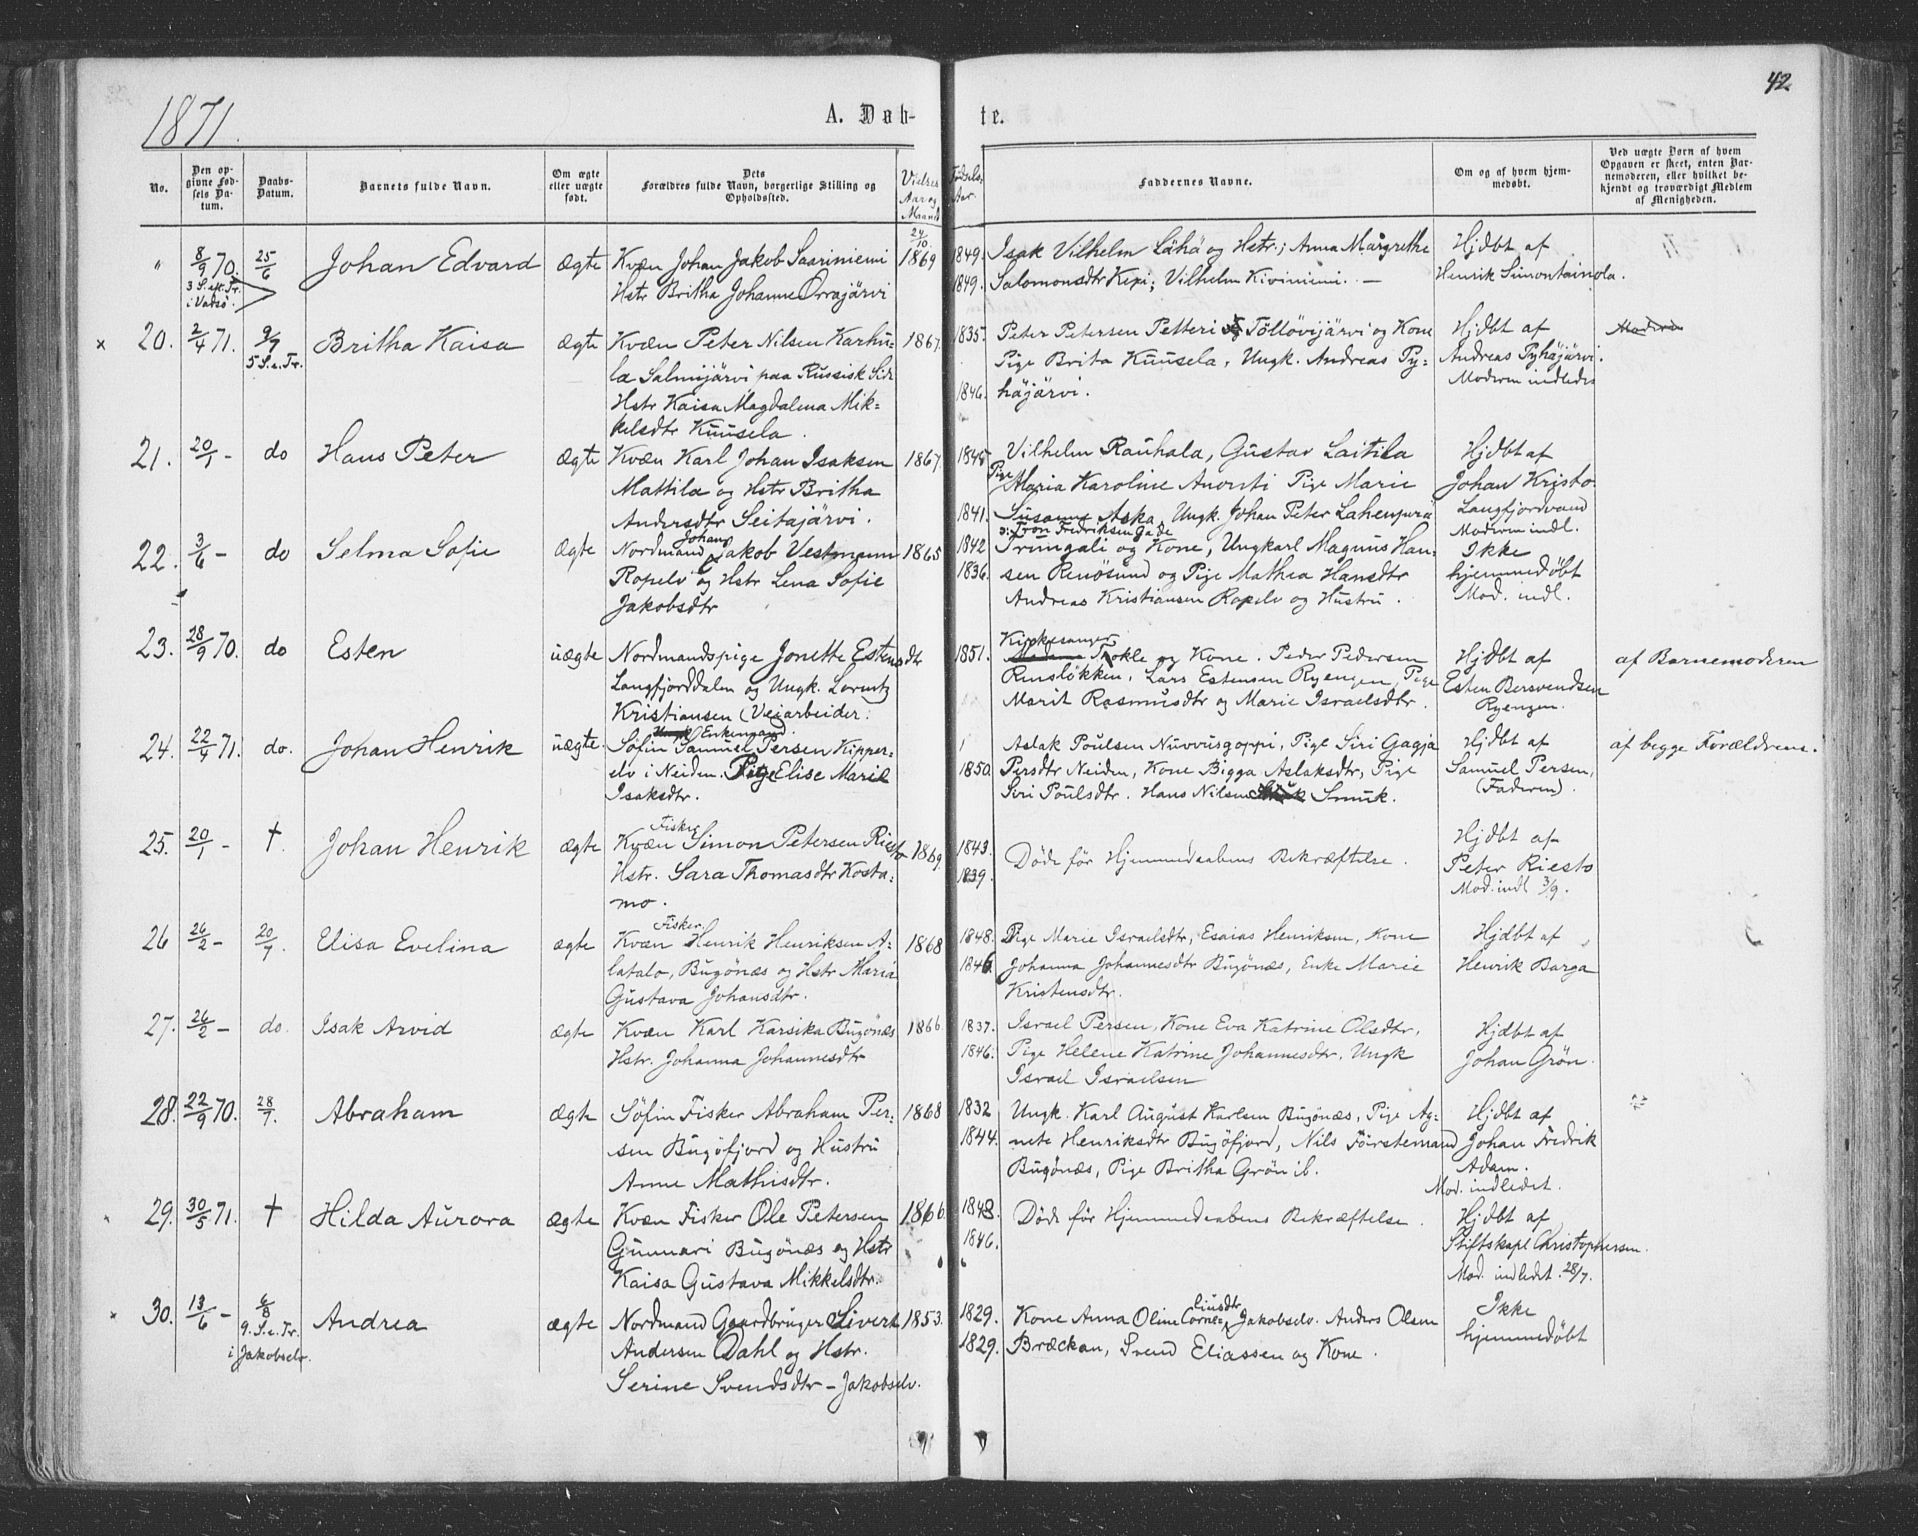 42
1871.
A. Døb-
te.
No.
Den op-
givne Fød-
sels Da-
tum.
Daabs-
Datum.
Barnets fulde Navn.
Om ægte
eller uægte
født.
Dets
Forældres fulde Navn, borgerlige Stilling og
Opholdssted.
Vielses
Aar og
Maaned
Fødsels-
Aar.
Faddernes Navne.
Om og af hvem hjem-
medøbt.
Ved uægte Børn af hvem
Opgaven er skeet, enten Bar-
nemoderen, eller hvilket be-
kjendt og troværdigt Medlem
af Menigheden.
" 8/9 70. 25/6 Johan Edvard ægte Kvæn Johan Jakob Saariniemi 24/10 1869 1849. Isak Vilhelm Lähä og Hstr.; Anna Margrethe Hjdbt af
3 S. ef. Tr. Hstr Britha Johanne Orrajärvi 1849. Salomonsdtr Kexi; Vilhelm Kiviniemi. — Henrik Simontainola.
i Vadsø.
× 20. 2/4 71. 9/7 Britha Kaisa ægte Kvæn Peter Nilsen Karhu- 1867. 1835. Peter Petersen Petteri Töllövijärvi og Kone Hjdbt af Moderen
5 S. e. Tr. la Salmijärvi paa Russisk Side Pige Brita Kuusela, Ungk. Andreas Py- Andreas Pyhäjärvi.
Hstr Kaisa Magdalena Mik- 1846. häjärvi. Moderen indledes
kelsdtr Kuusela.
21. 20/1 - do Hans Peter ægte Kvæn Karl Johan Isaksen 1867. 1845 Vilhelm Rauhala, Gustav Laitila Hjdbt af
Mattila og Hstr Britha Pige Maria Karoline Anorsti Pige Marie Johan Kristo
Andersdtr Seitajärvi. 1841. Susanna Aska, Ungk. Johan Peter Lahenperä Langfjordvand
Moderen indl.
22. 3/6 - do Selma Sofie ægte Nordmand Johan Jakob Vestmann 1865 1842 Trungali og Kone, Ungkarl Magnus Han- Ikke
Tron Fredriksen
Ropelv og Hstr Lena Sofie 1836. sen Renösund og Pige Mathea Hansdtr hjemmedøbt
Jakobsdtr Andreas Kristiansen Ropelv og Hustru. Mod. indl.
23. 28/9 70. do Esten uægte Nordmandspige Jonette Estensdtr 1851. Kirkesanger Tokle og Kone. Peder Pedersen Hjdbt af af Barnemoderen
Langfjorddalen og Ungk. Lorentz Rensløkken, Lars Estensen Ryengen, Pige Esten Bersvendsen
Kristiansen (Veiarbeider. Marit Rasmusdtr og Marie Israelsdtr. Ryengen.
24. 22/4 71. do. Johan Henrik uægte. Enkemand
Søfin Samuel Persen Kipper- Aslak Poulsen Nuvvusgoppi, Pige Siri Gagja Hjdbt af af begge Forældrene.
elv i Neiden. Pige Elise Marie 1850. Persdtr Neiden, Kone Bigga Aslaksdtr, Pige Samuel Persen,
Isaksdtr. Siri Poulsdtr. Hans Nilsen Smuk. (Faderen).
25. 20/1 - †. Johan Henrik ægte Fisker
Kvæn Simon Petersen Riesto 1869. 1843. Døde før Hjemmedaabens Bekræftelse. Hjdbt af
Hstr. Sara Thomasdtr Kosta- 1839. Peter Riesto
mo. Mod. indl 3/9.
26 26/2 - 20/7. Elisa Evelina ægte Fisker
Kvæn Henrik Henriksen A- 1868 1848. Pige Marie Israelsdtr, Esaias Henriksen, Kone Hjdbt af
latalo, Bugönæs og Hstr Maria 1846. Johanna Johannesdtr Bugönæs, Enke Marie Henrik Barga
Gustava Johansdtr. Kristensdtr.
27. 26/2 - do. Isak Arvid ægte Kvæn Karl Karsika Bugönæs 1866 1837. Israel Persen, Kone Eva Katrine Olsdtr, Hjdbt af
Hstr. Johanna Johannesdtr 1846. Pige Helene Katrine Johannesdtr, Ungk Johan Grön.
Israel Israelsen
28. 22/9 70. 28/7. Abraham ægte Søfin Fisker Abraham Per- 1868 1832 Ungk. Karl August Karlsen Bugönæs, Pige Ag- Hjdbt af
sen Bugöfjord og Hustru 1844. nete Henriksdtr Bugöfjord, Nils Förstemand Johan Fredrik
Anne Mathisdtr. Bugönæs, Pige Britha Grön ib. Adam.
Mod. indledet.
29. 30/5 71. † Hilda Aurora ægte Kvæn Fisker Ole Petersen 1866. 1848. Døde før Hjemmedaabens Bekræftelse. Hjdbt af
Gunnari Bugönæs og Hstr 1846. Stiftskapl Christophersen.
Kaisa Gustava Mikkelsdtr. Mod. indledet. 28/7.
30. 13/6 - 6/8 Andrea ægte Nordmand Gaardbruger Sivert 1853. 1829. Kone Anna Oline Corneliusdtr Jakobselv. Anders Olsen Ikke
9. S. e. Tr. Andersen Dahl og Hstr. 1829. Bræckan, Svend Eliassen og Kone. hjemmedøbt
i Jakobselv. Serine Svendsdtr - Jakobselv.